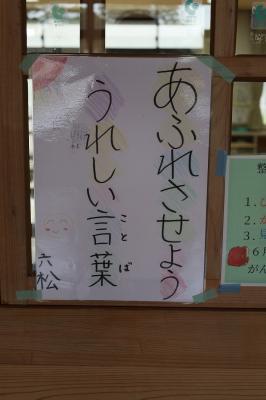 あふれさせよう
うれしい言葉
ことば
六松
整
1.
2.
3.
6
がん